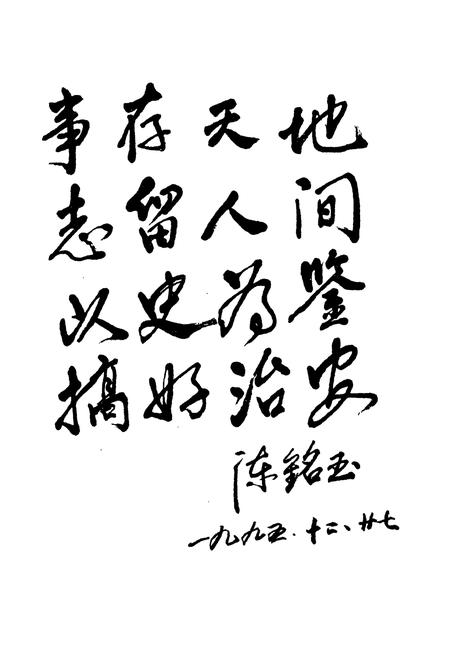 事存天地
志留人间
以史为鉴
搞好治安
陈铭玉
一九九五.十二、廿七